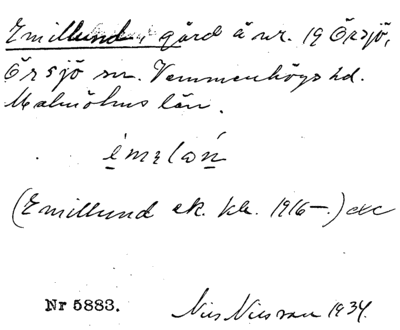 Emillund, gård å nr. 19 Örsjö,
Örsjö sn. Vemmenhögs hd.
Malmöhus län.
(Emillund ek. kk. 1916–)
Nr 5883.
Nils Nilsson 1934.